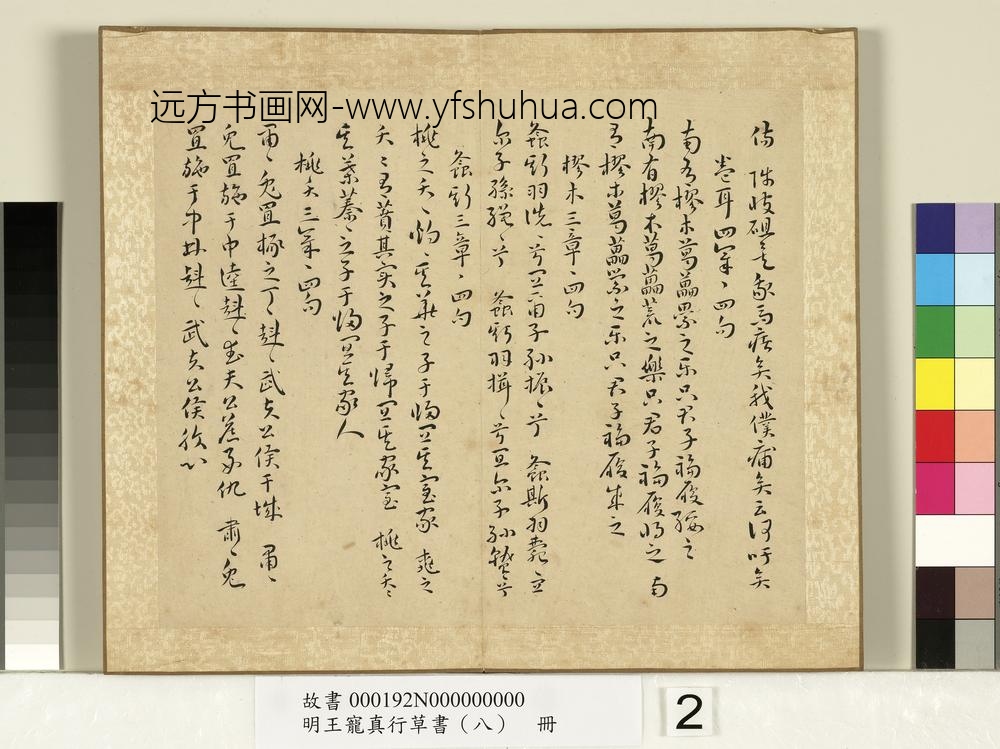 远方书画网-www.yfshuhua.com
傷 陟彼砠矣我馬瘏矣我僕痡矣云何吁矣
卷耳四章〻四句
南有樛木葛藟纍之乐只君子福履綏之
南有樛木葛藟荒之樂只君子福履將之 南
有樛木葛藟縈之乐只君子福履成之
樛木三章〻四句
螽斯羽詵〻兮宜爾子孫振〻兮 螽斯羽薨〻兮宜
爾子孫繩〻兮 螽斯羽揖〻兮宜爾子孫蟄〻兮
螽斯三章〻四句
桃之夭〻灼〻其華之子于歸宜其室家 桃之
夭〻有蕡其實之子于歸宜其家室 桃之夭〻
其葉蓁〻之子于歸宜其家人
桃夭三章〻四句
肅〻兔罝椓之丁〻赳〻武夫公侯干城 肅〻
兔罝施于中逵赳〻武夫公侯好仇 肅〻兔
罝施于中林赳〻武夫公侯腹心
故書 000192N000000000
明王寵真行草書（八） 冊
2